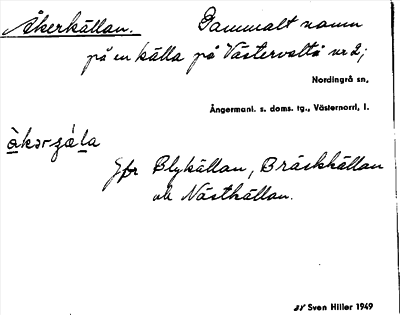 Åkerkällan. Gammalt namn
på en källa på Västervalto nr 2;
Nordingrå sn,
Ångermanl. s. doms. tg., Västernorrl, l.
Jfr Blykällan, Bräckkällan
och Nästkällan.
av Sven Hiller 1949